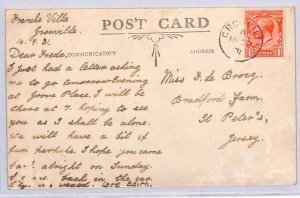 Franche Villa
Grouville
10.9.31.
POST CARD
COMMUNICATION
ADDRESS
Dear Freda,
I just had a letter asking
me to go tomorrow evening
at Grove Place. I shall be
there at 7. hoping to see
you as I shall be alone.
we will have a bit of
fun perhaps. I hope you came
back alright on Sunday.
I was back in the car
Love Edith,
Miss F. de Brocq.
Bradford Farm,
St Peter's,
Jersey.